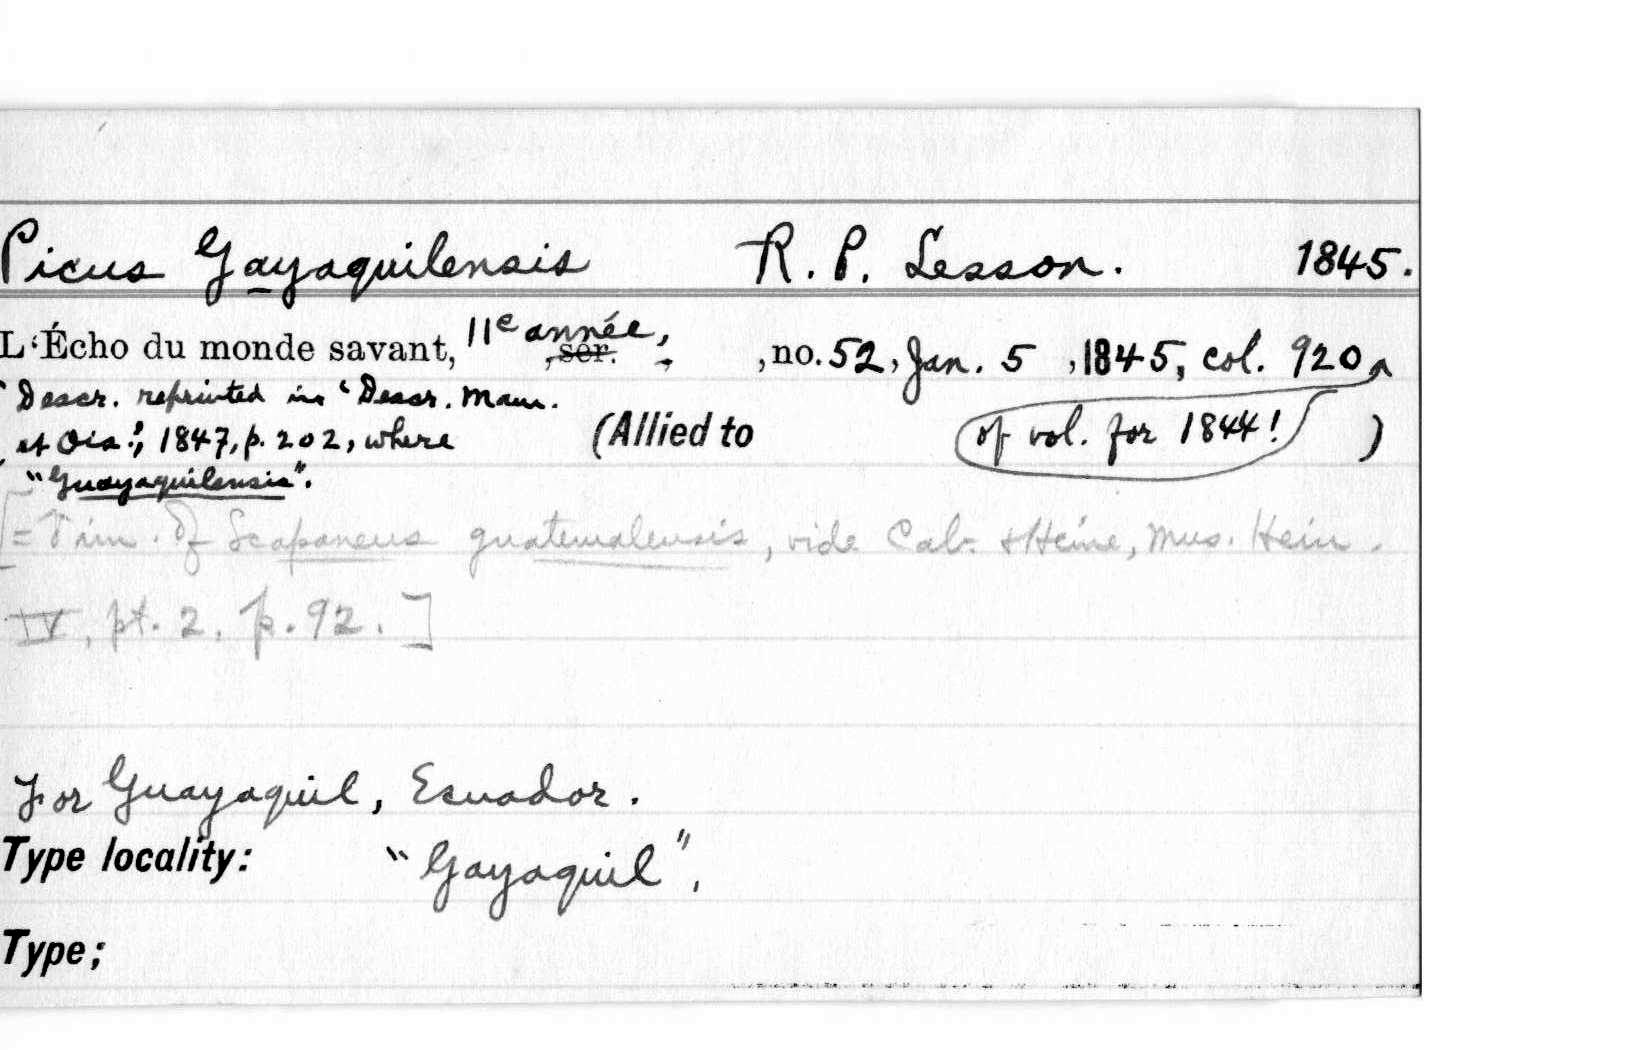 Picus Gayaquilensis R. P. Lesson. 1845.
L'Écho du monde savant, 11e année, ,ser. , ,no. 52, Jan. 5 ,1845, col. 920
Descr. reprinted in 'Descr. Mam.
et Ois.', 1847, p. 202, where (Allied to of vol. for 1844! )
"Guayaquilensis".
[= Syn. of Scapaneus guatemalensis, vide Cab. & Heine, Mus. Hein.
IV, pt. 2, p. 92.]
For Guayaquil, Ecuador.
Type locality: "Gayaquil".
Type;